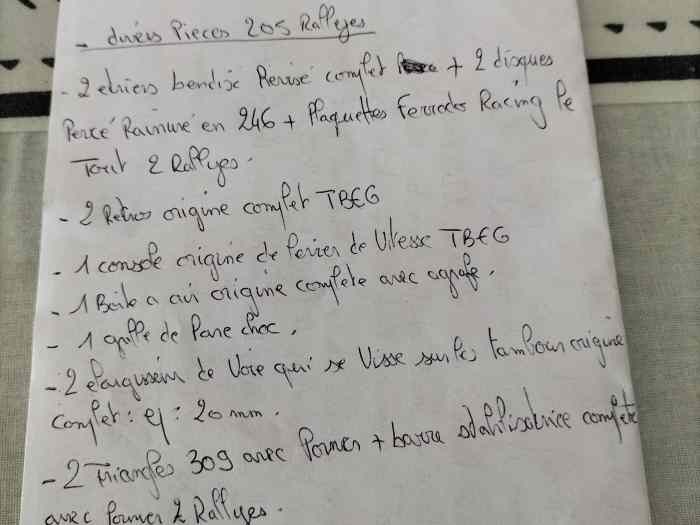 - divers Pieces 205 Rallyes
- 2 etriers bendix Revisé complet + 2 disques
Percé Rainuré en 246 + Plaquettes Ferrodo Racing le
Tout 2 Rallyes.
- 2 Retros origine complet TBEG
- 1 console origine de levier de Vitesse TBEG
- 1 Boite a air origine complete avec agrafe.
- 1 griffe de Pare choc.
- 2 elargisseur de Voie qui se Visse sur les tambour origine
complet : ej : 20 mm.
- 2 Triangles 309 avec Pornner + barre stabilisatrice complete
avec Pornner 2 Rallyes.